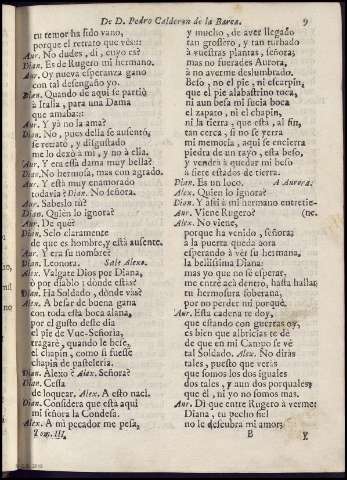 De D. Pedro Calderon de la Barca. 9
tu temor ha sido vano,
porque el retrato que vès::
Aur. No dudes, di, cuyo es?
Dian. Es de Rugero mi hermano.
Aur. Oy nueva esperanza gano
con tal desengaño yo.
Dian. Quando de aqui se partiò
à Italia, para una Dama
que amaba::
Aur. Y yà no la ama?
Dian. No, pues della se ausentò,
se retratò, y disgustado
me lo dexò à mi, y no à ella.
Aur. Y era essa dama muy bella?
Dian. No hermosa, mas con agrado.
Aur. Y està muy enamorado
todavia? Dian. No señora.
Aur. Sabeslo tù?
Dian. Quièn lo ignora?
Aur. De què?
Dian. Solo claramente
de que es hombre, y està ausente.
Aur. Y era su nombre?
Dian. Leonora. Sale Alexo.
Alex. Valgate Dios por Diana,
ò por diablo: dònde estàs?
Dian. Ha Soldado, dònde vàs?
Alex. A besar de buena gana
con toda esta boca alana,
por el gusto deste dia
el pie de Vue-Señoria,
tragarè, quando le bese,
el chapin, como si fuesse
chapin de pasteleria.
Dian. Alexo? Alex. Señora?
Dian. Cessa
de loquear. Alex. A esto nacì.
Dian. Considera que està aqui
mi señora la Condesa.
Alex. A mi pecador me pesa,
Tom. III.
y mucho, de aver llegado
tan grossero, y tan turbado
à vuestras plantas, señora;
mas no fuerades Aurora,
à no averme deslumbrado.
Beso, no el pie, ni escarpin,
que el pie alabastrino toca,
ni aun besa mi sucia boca
el zapato, ni el chapin,
ni la tierra, que està, al fin,
tan cerca, si no se yerra
mi memoria, aqui se encierra
piedra de un rayo, esta beso,
y vendrà à quedar mi beso
à siete estados de tierra.
Dian. Es un loco. A Aurora.
Alex. Quièn lo ignora?
Dian. Y assi à mi hermano entretie-
Aur. Viene Rugero? (ne.
Alex. No viene,
porque ha venido, señora;
à la puerta queda aora
esperando à vèr su hermana,
la bellissima Diana:
mas yo que no sè esperar,
me entrè acà dentro, hasta hallar
tu hermosura soberana,
por no perder mi porquè.
Aur. Esta cadena te doy,
que estando con guerras oy,
es bien que albricias te dè
de que en mi Campo se vè
tal Soldado. Alex. No diràs
tales, puesto que veràs
que somos los dos iguales
dos tales, y aun dos porquales;
que èl, ni yo no somos mas.
Aur. Dì que entre Rugero à verme:
Diana, tu pecho fiel
no le descubra mi amor;
B Y